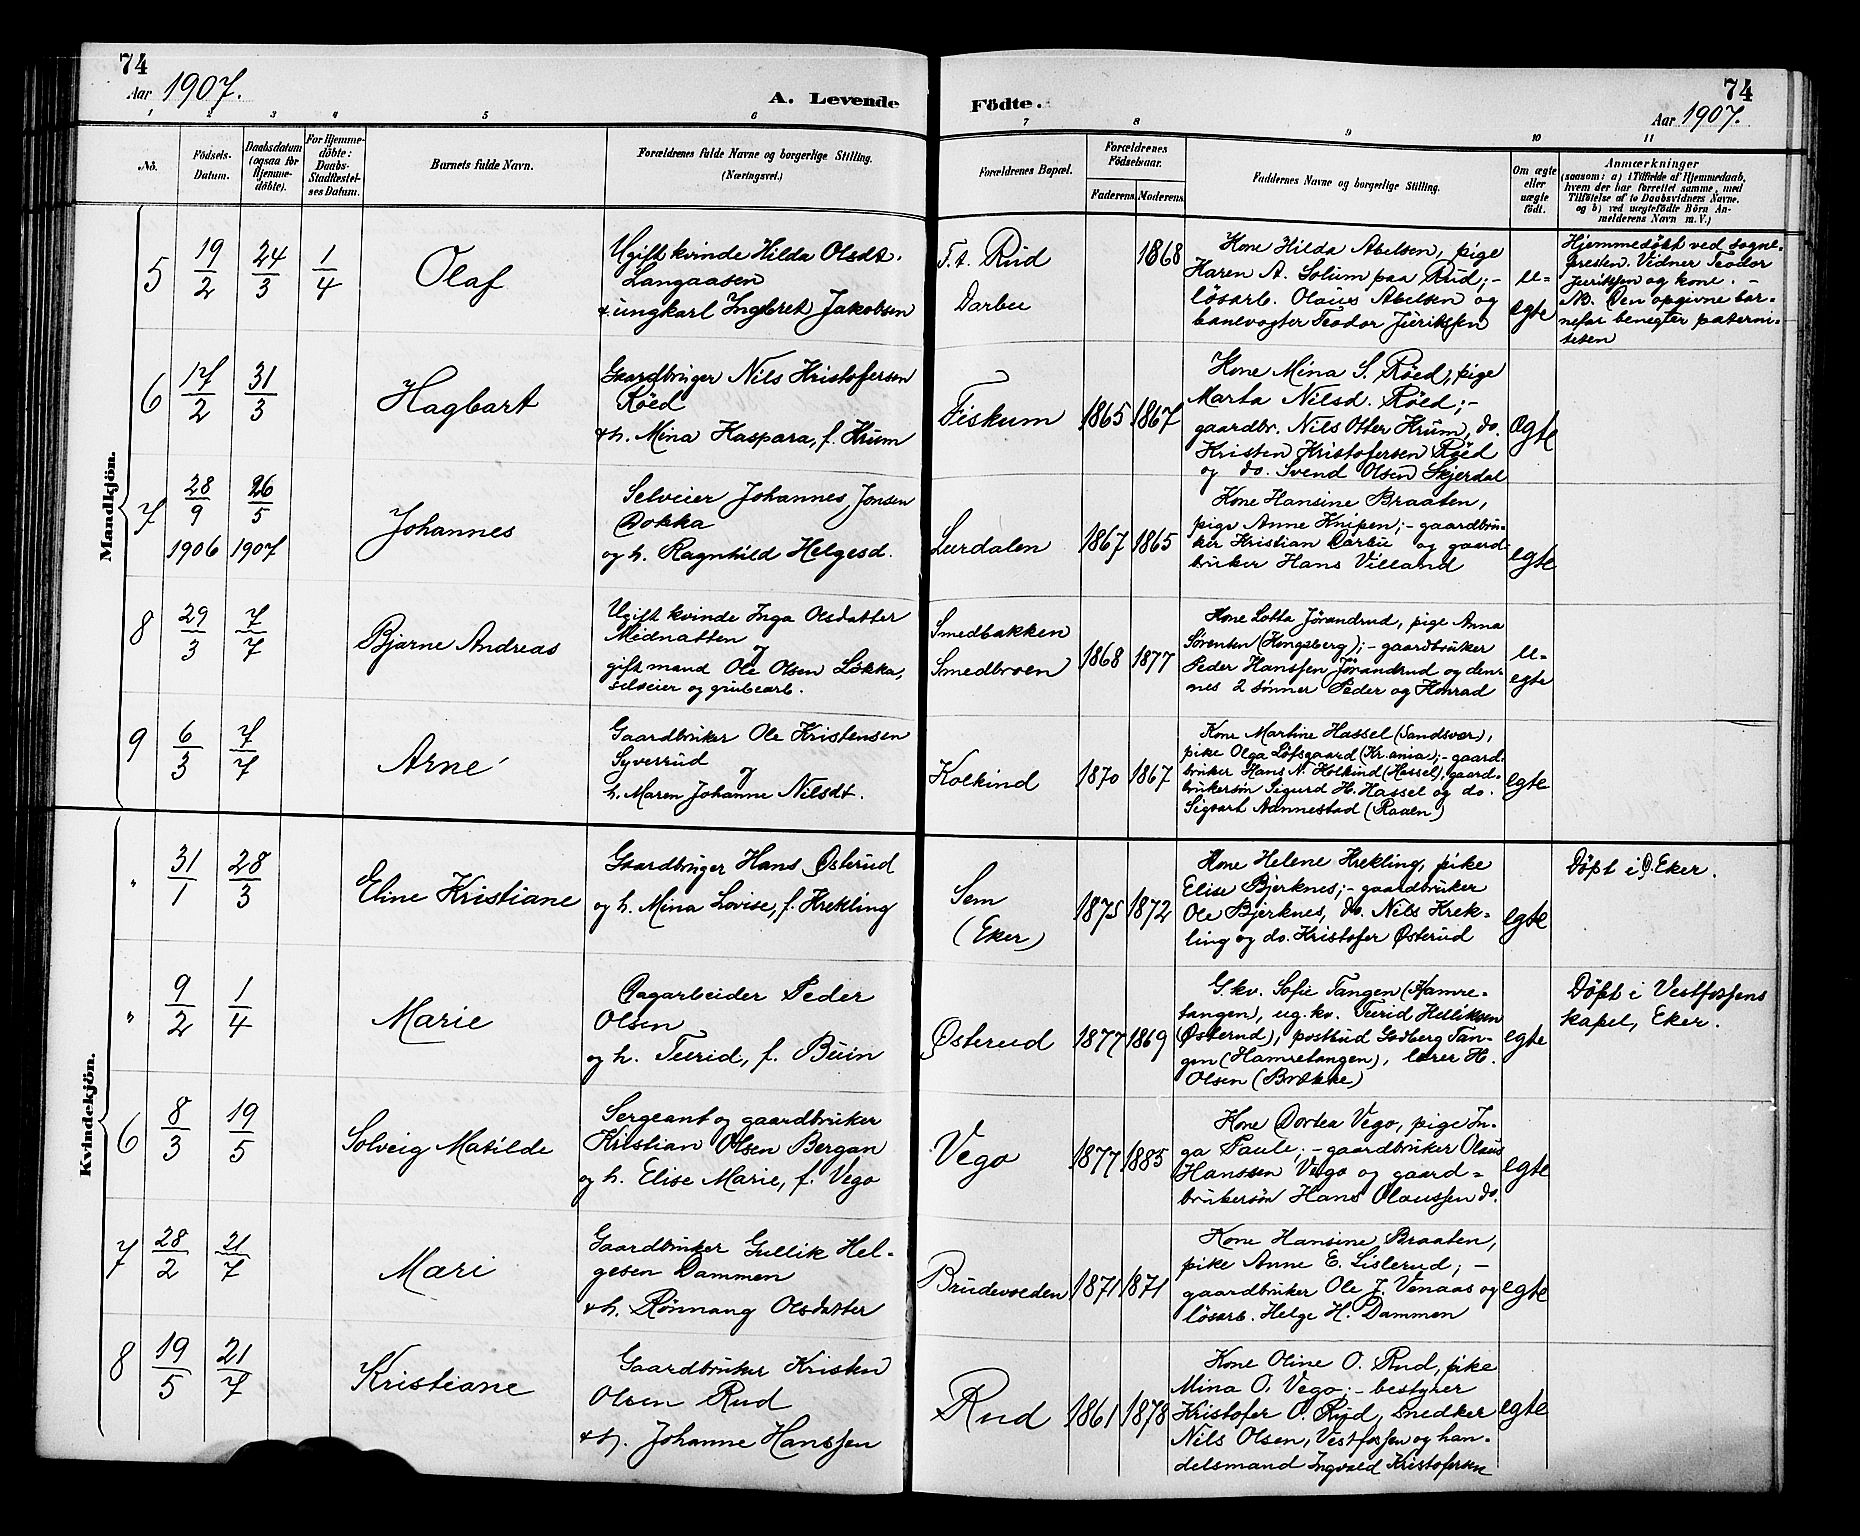 74
Aar 1907.
A. Levende
Födte.
74
Aar 1907.
1 2 3 4 5 6 7 8 9 10 11
No.
Födsels-
Datum.
Daabsdatum
(ogsaa for
Hjemme-
döbte).
For Hjemme-
döbte:
Daabs-
Stadfæstel-
ses Datum.
Barnets fulde Navn.
Forældrenes fulde Navne og borgerlige Stilling.
(Næringsvei.)
Forældrenes Bopæl.
Forældrenes
Födselsaar.
Faderens.
Moderens.
Faddernes Navne og borgerlige Stilling.
Om ægte
eller
uægte
födt.
Anmærkninger
(saasom: a) i Tilfælde af Hjemmedaab,
hvem der har forrettet samme, med
Tilföielse af to Daabsvidners Navne.
og b) ved uægtefödte Börn An-
melderens Navn m. V.)
Mandkjön.
5
19/2
24/3
1/4
Olaf
Ugift kvinde Hilda Olsdt.
Langaasen
& ungkarl Ingbret Jakobsen
F.t. Rud
Darbu
1868
Kone Hilda Abelsen, pige
Karen A. Solum paa Rud;-
lösarb. Olaus Abelsen og
banevogter Teodor Juriksen
u-
egte
Hjemmedöbt ved sogne-
presten. Vidner Teodor
Juriksen og kone. -
NB. Den opgivne bar-
nefar benegter paterni-
teten
6
17/2
31/3
Hagbart
Gaardbruger Nils Kristofersen
Röed
& h. Mina Kaspara, f. Krum
Fiskum
1865
1867
Kone Mina S. Röed, pige
Marta Nilsd. Röed;-
gaardbr. Nils Otter Krum, do.
Kristen Kristofersen Röed
og do. Svend Olsen Skjerdal
egte
7
28/9
1906
26/5
1907
Johannes
Selveier Johannes Jonsen
Dokka
og h. Ragnhild Helgesd.
Lurdalen
1867
1865
Kone Hansine Braaten,
pige Anne Knipen;- gaardbru-
ker Kristian Darbu og gaard-
bruker Hans Villand
egte
8
29/3
7/7
Bjarne Andreas
Ugift kvinde Inga Olsdatter
Midnatten
og
gift mand Ole Olsen Lökka,
selveier og grubearb.
Smedbakken
Smedbroen
1868
1877
Kone Lotta Jörandrud, pige Anna
Sörensen (Kongsberg);- gaardbruker
Peder Hanssen Jörandrud og den-
nes 2 sönner Peder og Konrad
u-
egte
9
6/3
7/7
Arne
Gaardbruker Ole Kristensen
Syverrud
og
h. Maren Johanne Nilsdt.
Kolkind
1870
1867
Kone Martine Hassel (Sandsvær),
pike Olga Löfsgaard (Kr.ania);- gaard-
bruker Hans N. Kolkind (Hassel), gaard-
brukersön Sigurd H. Hassel og do.
Sigvart Aannestad (Raaen)
egte
Kvindekjön.
"
31/1
28/3
Eline Kristiane
Gaardbruger Hans Østerud
og h. Mina Lovise, f. Krekling
Sem
(Eker)
1875
1872
Kone Helene Krekling, pike
Elise Bjerknes;- gaardbruker
Ole Bjerknes, do. Nils Krek-
ling og do. Kristofer Østerud
egte
Döpt i Ø. Eker.
"
9/2
1/4
Marie
Dagarbeider Peder
Olsen
og h. Turid, f. Buin
Østerud
1877
1869
G.kv. Sofie Tangen (Hamre-
tangen), ug. kv. Turid Helliksen
(Østerud), postbud Godberg Tan-
gen (Hamretangen), lærer H.
Olsen (Brække)
egte
Döpt i Vestfossens
kapel, Eker.
6
8/3
19/5
Solveig Matilde
Sergeant og gaardbruker
Kristian Olsen Bergan
og h. Elise Marie, f. Vego
Vego
1877
1885
Kone Dortea Vego, pige In-
ga Paule;- gaardbruker Olaus
Hanssen Vego og gaard-
brukersön Hans Olaussen do.
egte
7
28/2
21/7
Mari
Gaardbruker Gullik Hel-
gesen Dammen
& h. Rönnaug Olsdatter
Brudevolden
1871
1871
Kone Hansine Braaten,
pike Anne E. Lislerud; -
gaardbruker Ole J. Venaas og
lösarb. Helge H. Dammen
egte
8
19/5
21/7
Kristiane
Gaardbruker Kristen
Olsen Rud
& h. Johanne Hanssen
Rud
1861
1878
Kone Oline O. Rud, pike
Mina O. Vego;- bestyrer
Kristofer O. Rud, snedker
Nils Olsen, Vestfossen og han-
delsmand Ingvald Kristofersen
egte